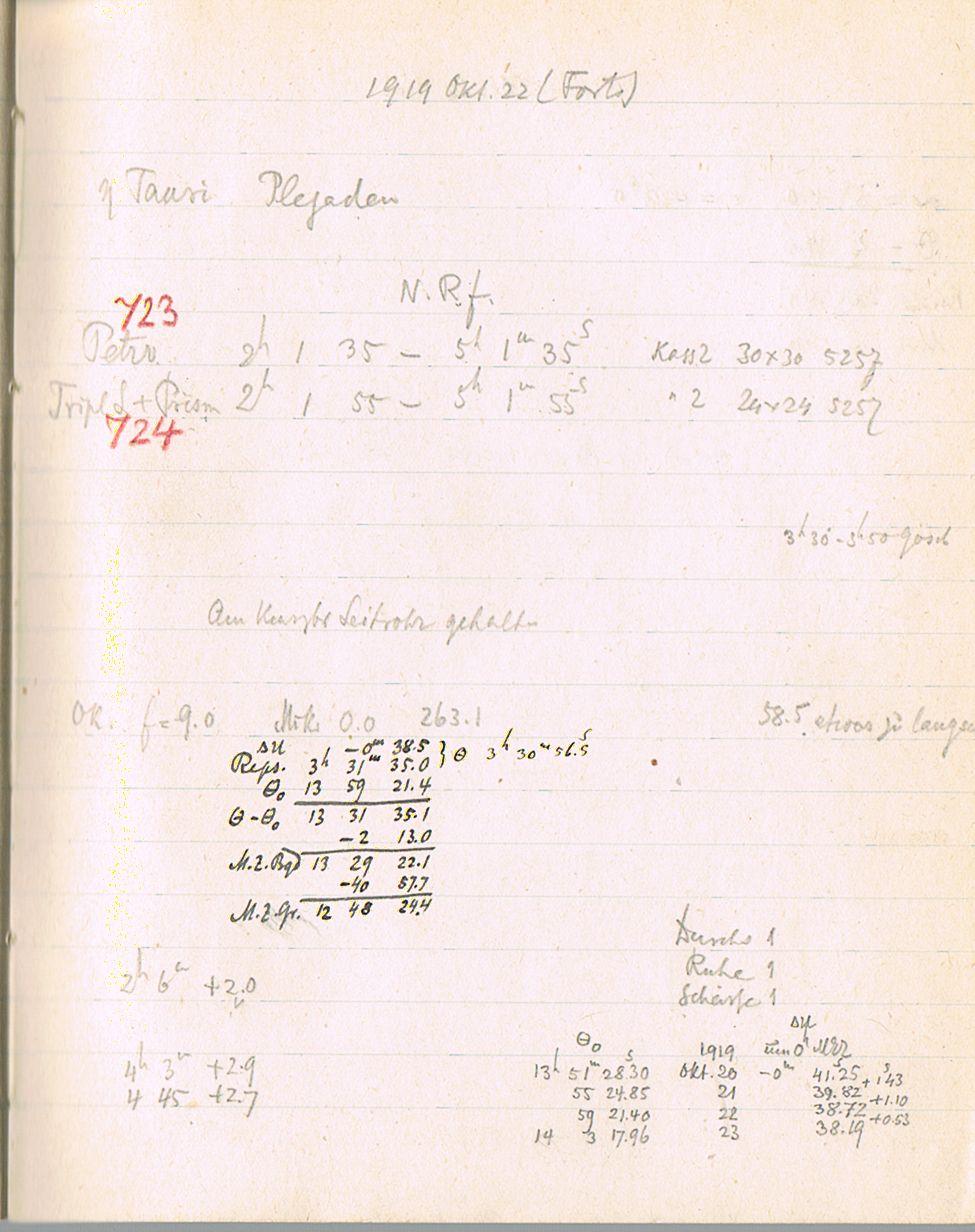 1919 Okt. 22 (Forts)
η Tauri Plejaden
N. R. f.
723
Petzv. 2h 1 35 – 5h 1m 35s Kass 2 30×30 5257
Tripl + Prism 2h 1 55 – 5h 1m 55s " 2 24×24 5257
724
3h 30 – 3h 50
Am Leitrohr gehalten
Ok. f = 9.0 Mik. 0.0 263.1 58.5 etwas zu langs
ΔU –0m 38.5
Reps. 3h 31m 35.0 } θ 3h 30m 56.5s
θ0 13 59 21.4
θ–θ0 13 31 35.1
–2 13.0
M.Z.Bgd 13 29 22.1
–40 57.7
M.Z.Gr. 12 48 24.4
Durchs 1
Ruhe 1
Schärfe 1
2h 6m +2.0
4h 3m +2.9
4 45 +2.7
θ0 1919 ΔU um 0h MEZ
13h 51m 28.30s Okt. 20 –0m 41.25s +1.43s
55 24.85 21 39.82 +1.10
59 21.40 22 38.72 +0.53
14 3 17.96 23 38.19